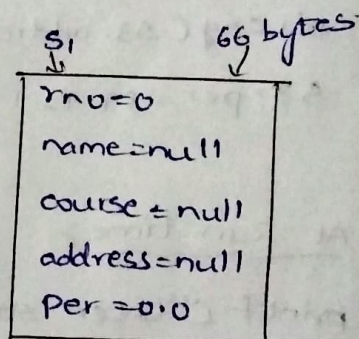 S1 66 bytes
rno=0
name=null
course=null
address=null
Per=0.0